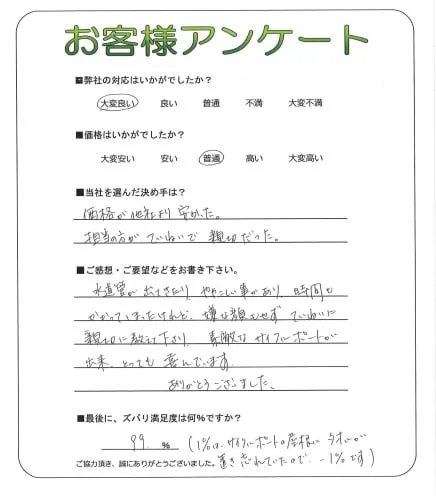 お客様アンケート
■弊社の対応はいかがでしたか?
大変良い 良い 普通 不満 大変不満
■価格はいかがでしたか?
大変安い 安い 普通 高い 大変高い
■当社を選んだ決め手は?
価格が他社より安かった。
担当の方がていねいで親切だった。
■ご感想・ご要望などをお書き下さい。
水道管が出てきたり、やややこしい事があり、時間も
かかってしまったけれど、嫌な顔もせずていねいに
親切に教えて下さり、素敵なサイクルポートが
出来、とっても喜んでいます
ありがとうございました。
■最後に、ズバリ満足度は何%ですか?
99 % (1%は、サイクルポートの屋根に
ご協力頂き、誠にありがとうございました。 置き忘れていたので、-1%です)